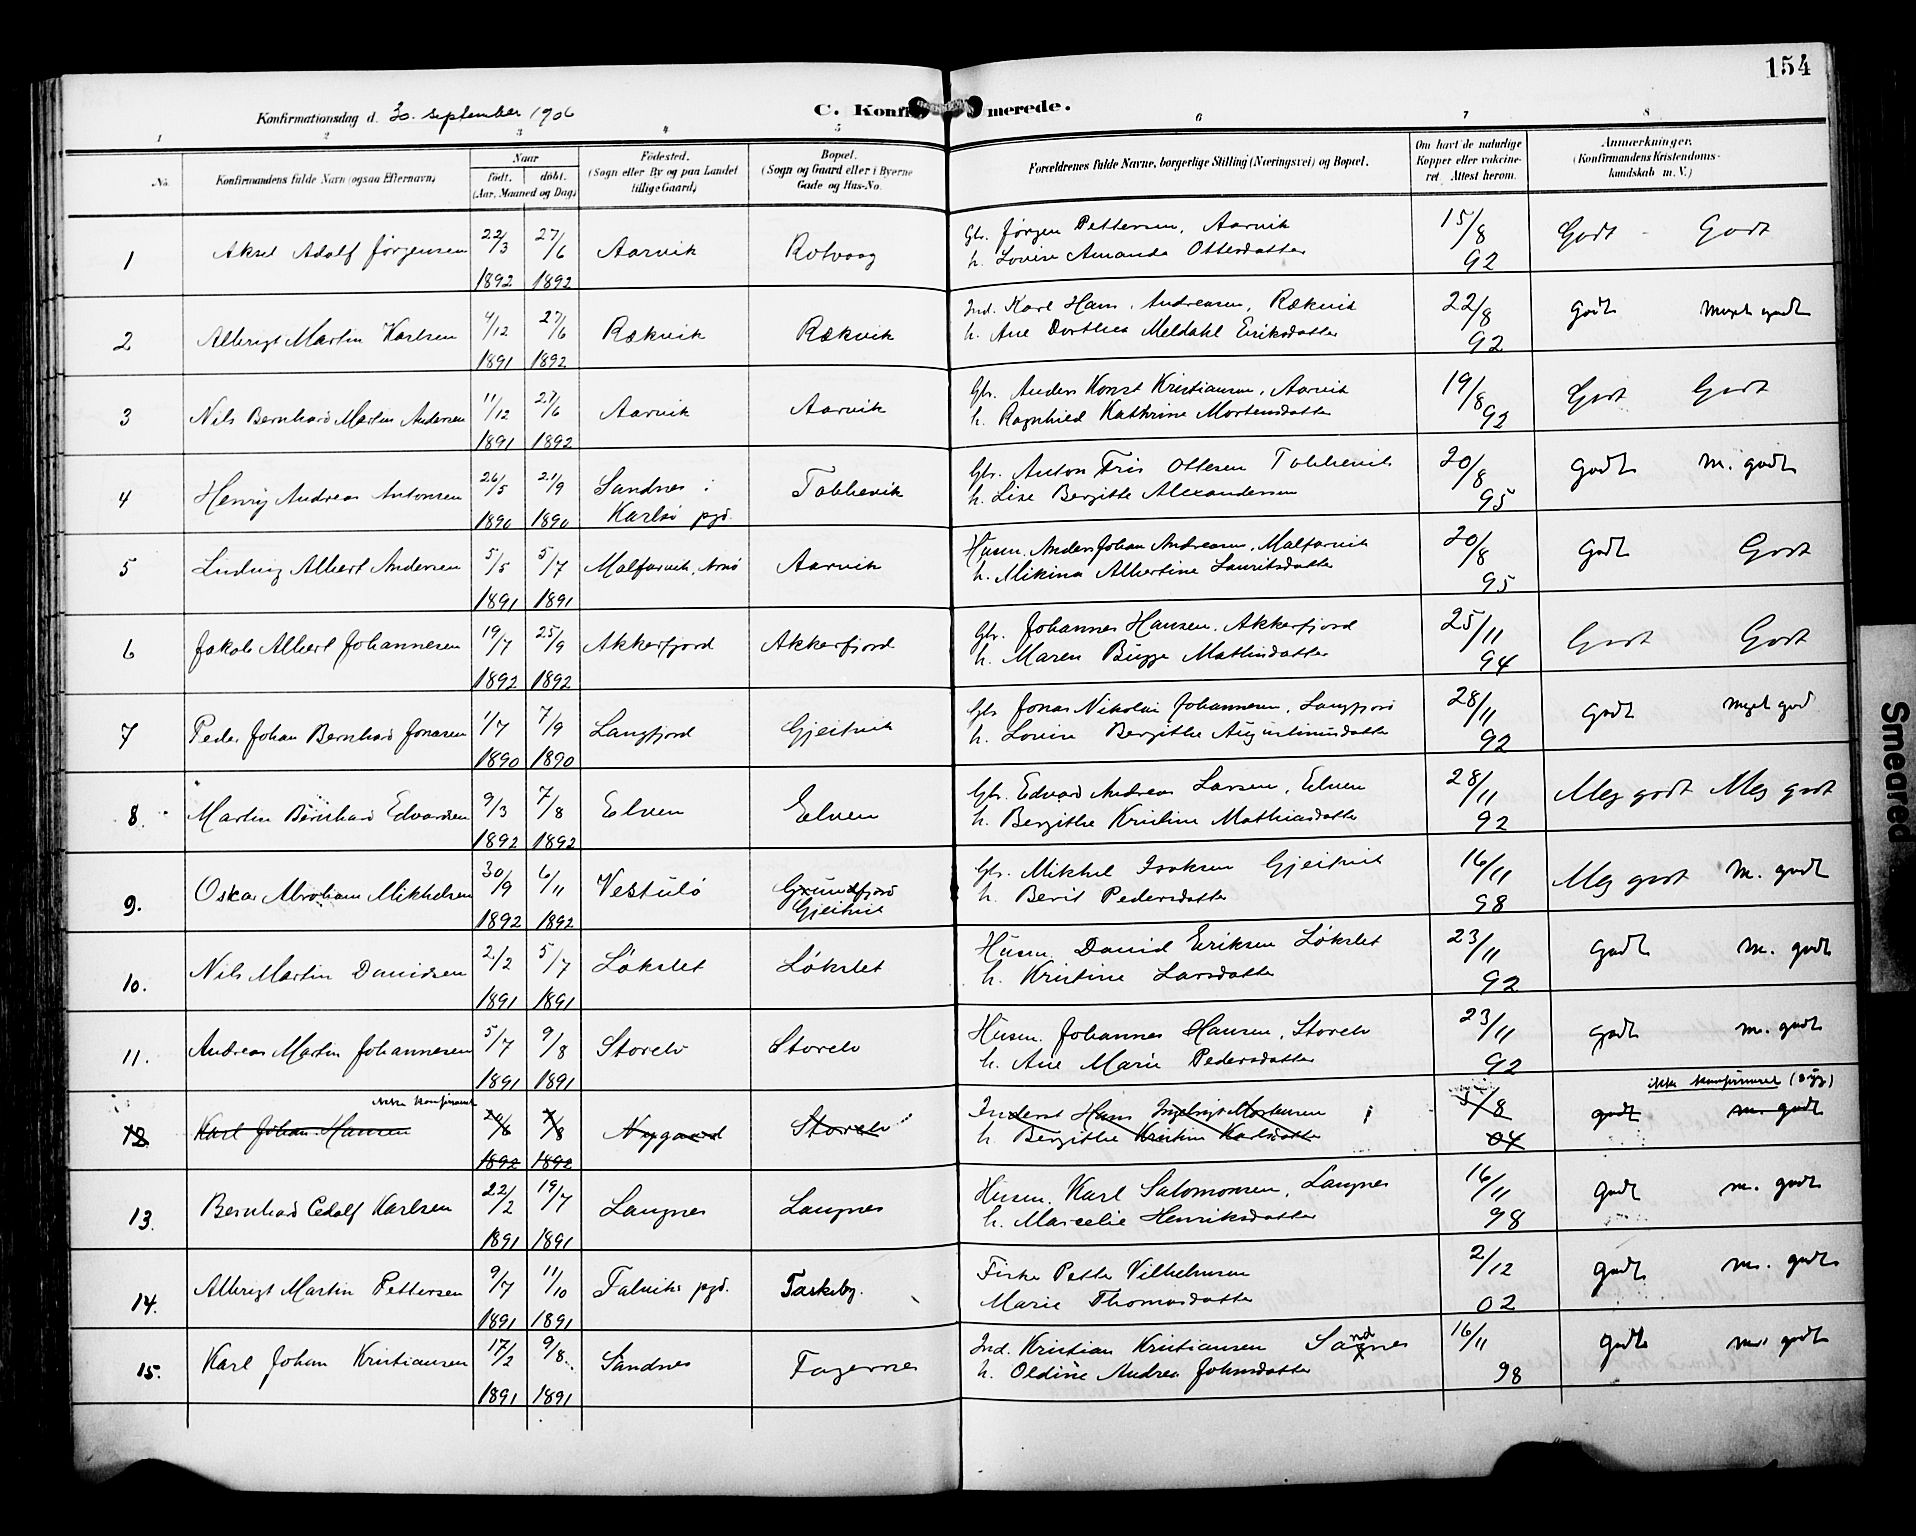 154
Konfirmationsdag d. 30. september 1906
C. Konfirmerede.
1 2 3 4 5 6 7 8
No. Konfirmandens fulde Navn (ogsaa Efternavn) Naar født. døbt. (Aar, Maaned og Dag) Fødested. (Sogn eller By og paa Landet tillige Gaard) Bopæl. (Sogn og Gaard eller i Byerne Gade og Hus-No. Forældrenes fulde Navne, borgerlige Stilling (Næringsvei) og Bopæl. Om havt de naturlige Kopper eller vakcineret. Attest herom. Anmærkninger. (Konfirmandens Kristendomskundskab m. V.)
1 Aksel Adolf Jørgensen 22/3 1892 27/6 1892 Aarvik Rotvaag Gbr. Jørgen Pettersen, Aarvik
h. Lovise Amanda Ottersdatter 15/8 92 Godt Godt
2 Albrigt Martin Karlsen 4/12 1891 27/6 1892 Rækvik Rækvik Ind. Karl Hans Andreasen, Rækvik
h. Ane Dorthea Meldahl Eriksdatter 22/8 92 godt meget godt
3 Nils Bernhard Martin Andersen 11/12 1891 27/6 1892 Aarvik Aarvik Gbr. Anders Konst Kristiansen, Aarvik
h. Ragnhild Kathrine Mortensdatter 19/8 92 Godt Godt
4 Henrij Andreas Antonsen 26/5 1890 21/9 1890 Sandnes i
Karlsø pgd. Tobbevik Gbr. Anton Fris Ottesen Tobbevik
h. Lise Bergitte Alexandersen 20/8 95 Godt m. godt
5 Ludvig Albert Andersen 5/5 1891 5/7 1891 Malfarvik, Arnø Aarvik Husm. Anders Johan Andreasen, Malfarvik
h. Mikina Albertine Lauritsdatter 20/8 95 Godt Godt
6 Jakob Albert Johannesen 19/7 1892 25/9 1892 Akkerfjord Akkerfjord Gbr. Johannes Hansen, Akkerfjord
h. Maren Bugge Mathisdatter 25/11 94 Godt Godt
7 Peder Johan Bernhard Jonasen 1/7 1890 7/9 1890 Langfjord Gjeitvik Gbr. Jonas Nikolai Johannesen, Langfjord
h. Lovise Bergithe Augustinusdatter 28/11 92 Godt meget god
8. Martin Bernhard Edvardsen 9/3 1892 7/8 1892 Elven Elven Gbr. Edvard Andreas Larsen, Elven
h. Bergithe Kristine Mathiasdatter 28/11 92 Meg godt Meg godt
9. Oskar Abraham Mikkelsen 30/9 1892 6/11 1892 Grundfjord
Gjeitvik Gbr. Mikkel Isaksen Gjeitvik
h. Berit Pedersdatter 16/11 98 Meg godt m. godt
10. Nils Martin Davidsen 2/2 1891 5/7 1891 Løkslet Løkslet Husm. David Eriksen Løkslet
h. Kristine Larsdatter 23/11 92 Godt m. godt
11. Andreas Martin Johannesen 5/7 1891 9/8 1891 Storelv Storelv Husm. Johannes Hansen, Storelv
h. Ane Marie Pedersdatter 23/11 92 godt m. godt
ikke konfirmeret ikke konfirmeret (syg)
12 Karl Johan Hansen 24/6 1892 7/8 1892 Nygaard Storelv Inderst Hans Ingebrigt Mortensen
h. Bergithe Kristine Karlsdatter 5/8 04 godt m. godt
13. Bernhard Edolf Karlsen 22/2 1891 19/7 1891 Langnes Langnes Husm. Karl Salomonsen, Langnes
h. Marcelie Henriksdatter 16/11 98 godt m. godt
14. Albrigt Martin Pettersen 9/7 1891 11/10 1891 Talviks pgd. Taskeby. Fisker Petter Vilhelmsen
Marie Thomasdatter 2/12 02 godt m. godt
15. Karl Johan Kristiansen 17/2 1891 9/8 1891 Sandnes Fagernes Ind. Kristian Kristiansen Sandnes
h. Oldine Andrea Johnsdatter 16/11 98 godt m. godt
Smeared.